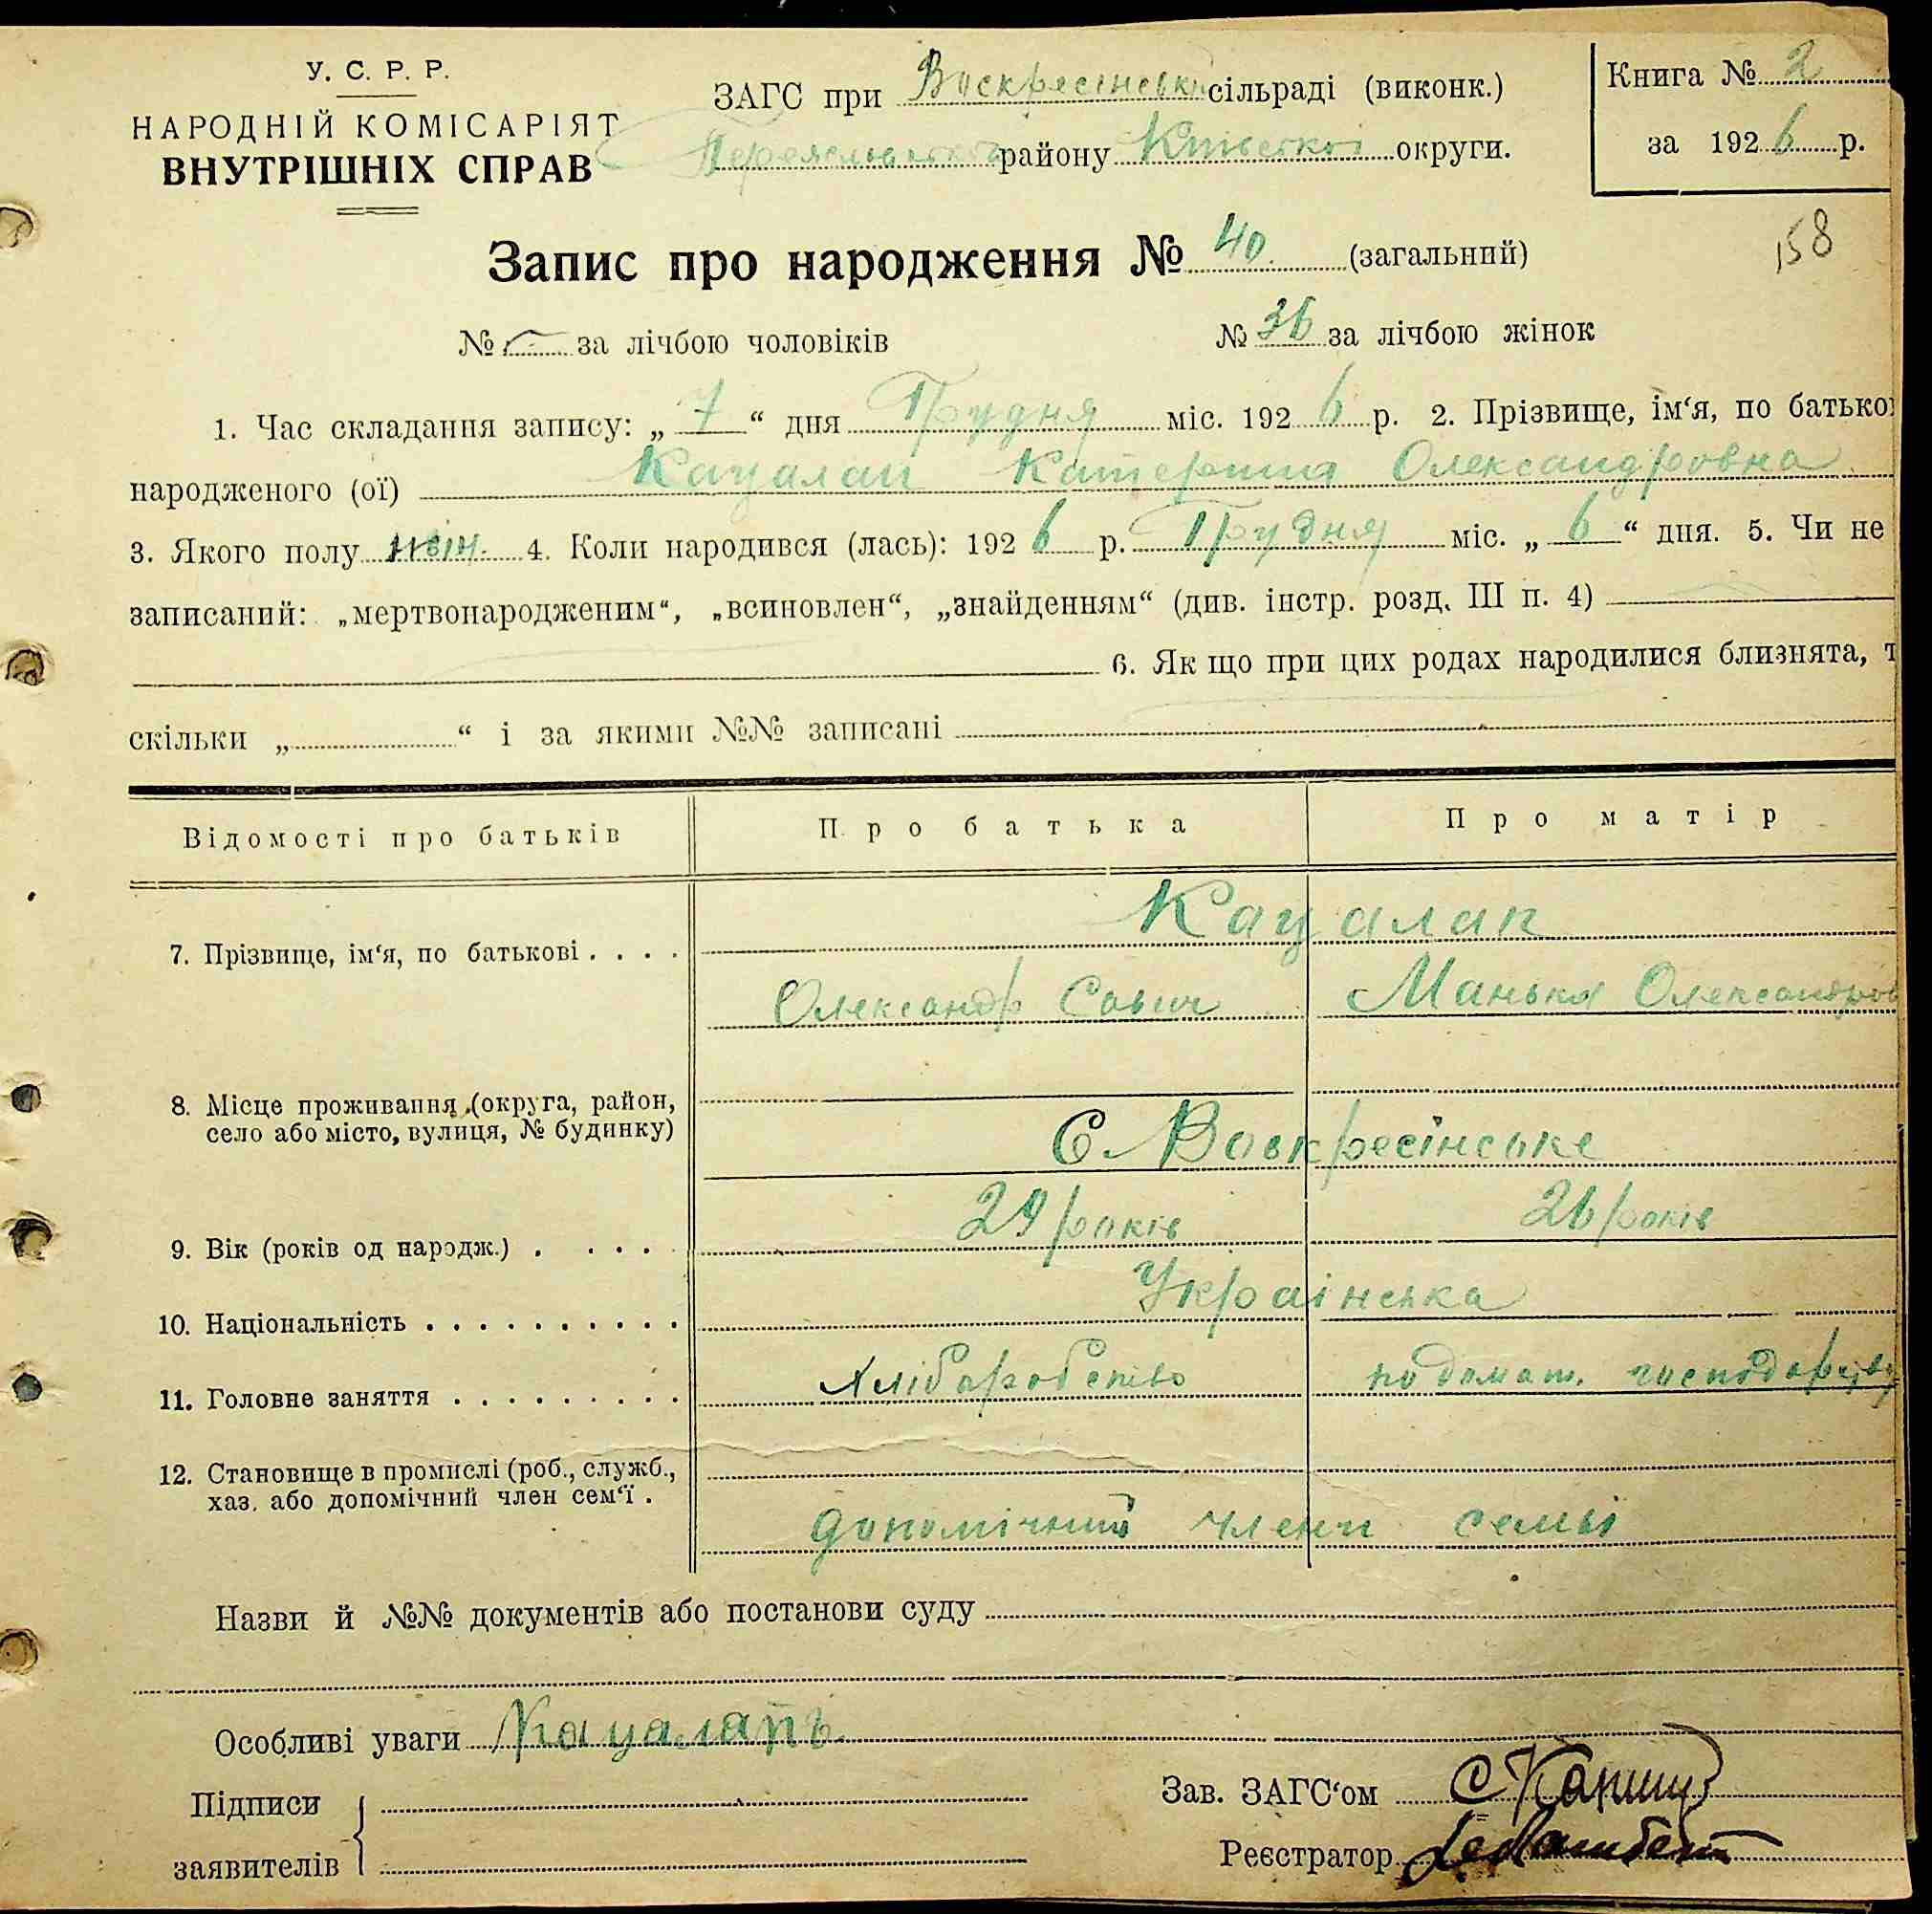 У. С. Р. Р.
НАРОДНІЙ КОМІСАРІЯТ
ВНУТРІШНІХ СПРАВ
ЗАГС при Воскресінські сільраді (виконк.)
району Київської округи.
Книга № 2
за 1926 р.
158
Запис про народження № 40. (загальний)
№ — за лічбою чоловіків № 36 за лічбою жінок
1. Час складання запису: „ 7 “ дня Грудня міс. 1926 р. 2. Прізвище, ім‘я, по батько
народженого (ої) Кацалап Катерина Олександровна
3. Якого полу жін. 4. Коли народився (лась): 1926 р. Грудня міс. „ 6 “ дня. 5. Чи не
записаний: „мертвонародженим“, „всиновлен“, „знайденням“ (див. інстр. розд. III п. 4)
6. Як що при цих родах народилися близнята, т
скільки „ “ і за якими №№ записані
Відомості про батьків Про батька Про матір
Кацалап
7. Прізвище, ім‘я, по батькові . . . .
Олександр Савич Манька Олександров
8. Місце проживання (округа, район,
село або місто, вулиця, № будинку)
С. Воскресінське
9. Вік (років од народж.) . . . . . 29 років 26 років
10. Національність . . . . . . . . . . Українська
11. Головне заняття . . . . . . . . . Хліборобство по домаш. господарству
12. Становище в промислі (роб., служб.,
хаз. або допомічний член сем‘ї .
допомічний члени семьі
Назви й №№ документів або постанови суду
Особливі уваги Кацалапъ
Підписи
заявителів
Зав. ЗАГС‘ом
Реєстратор